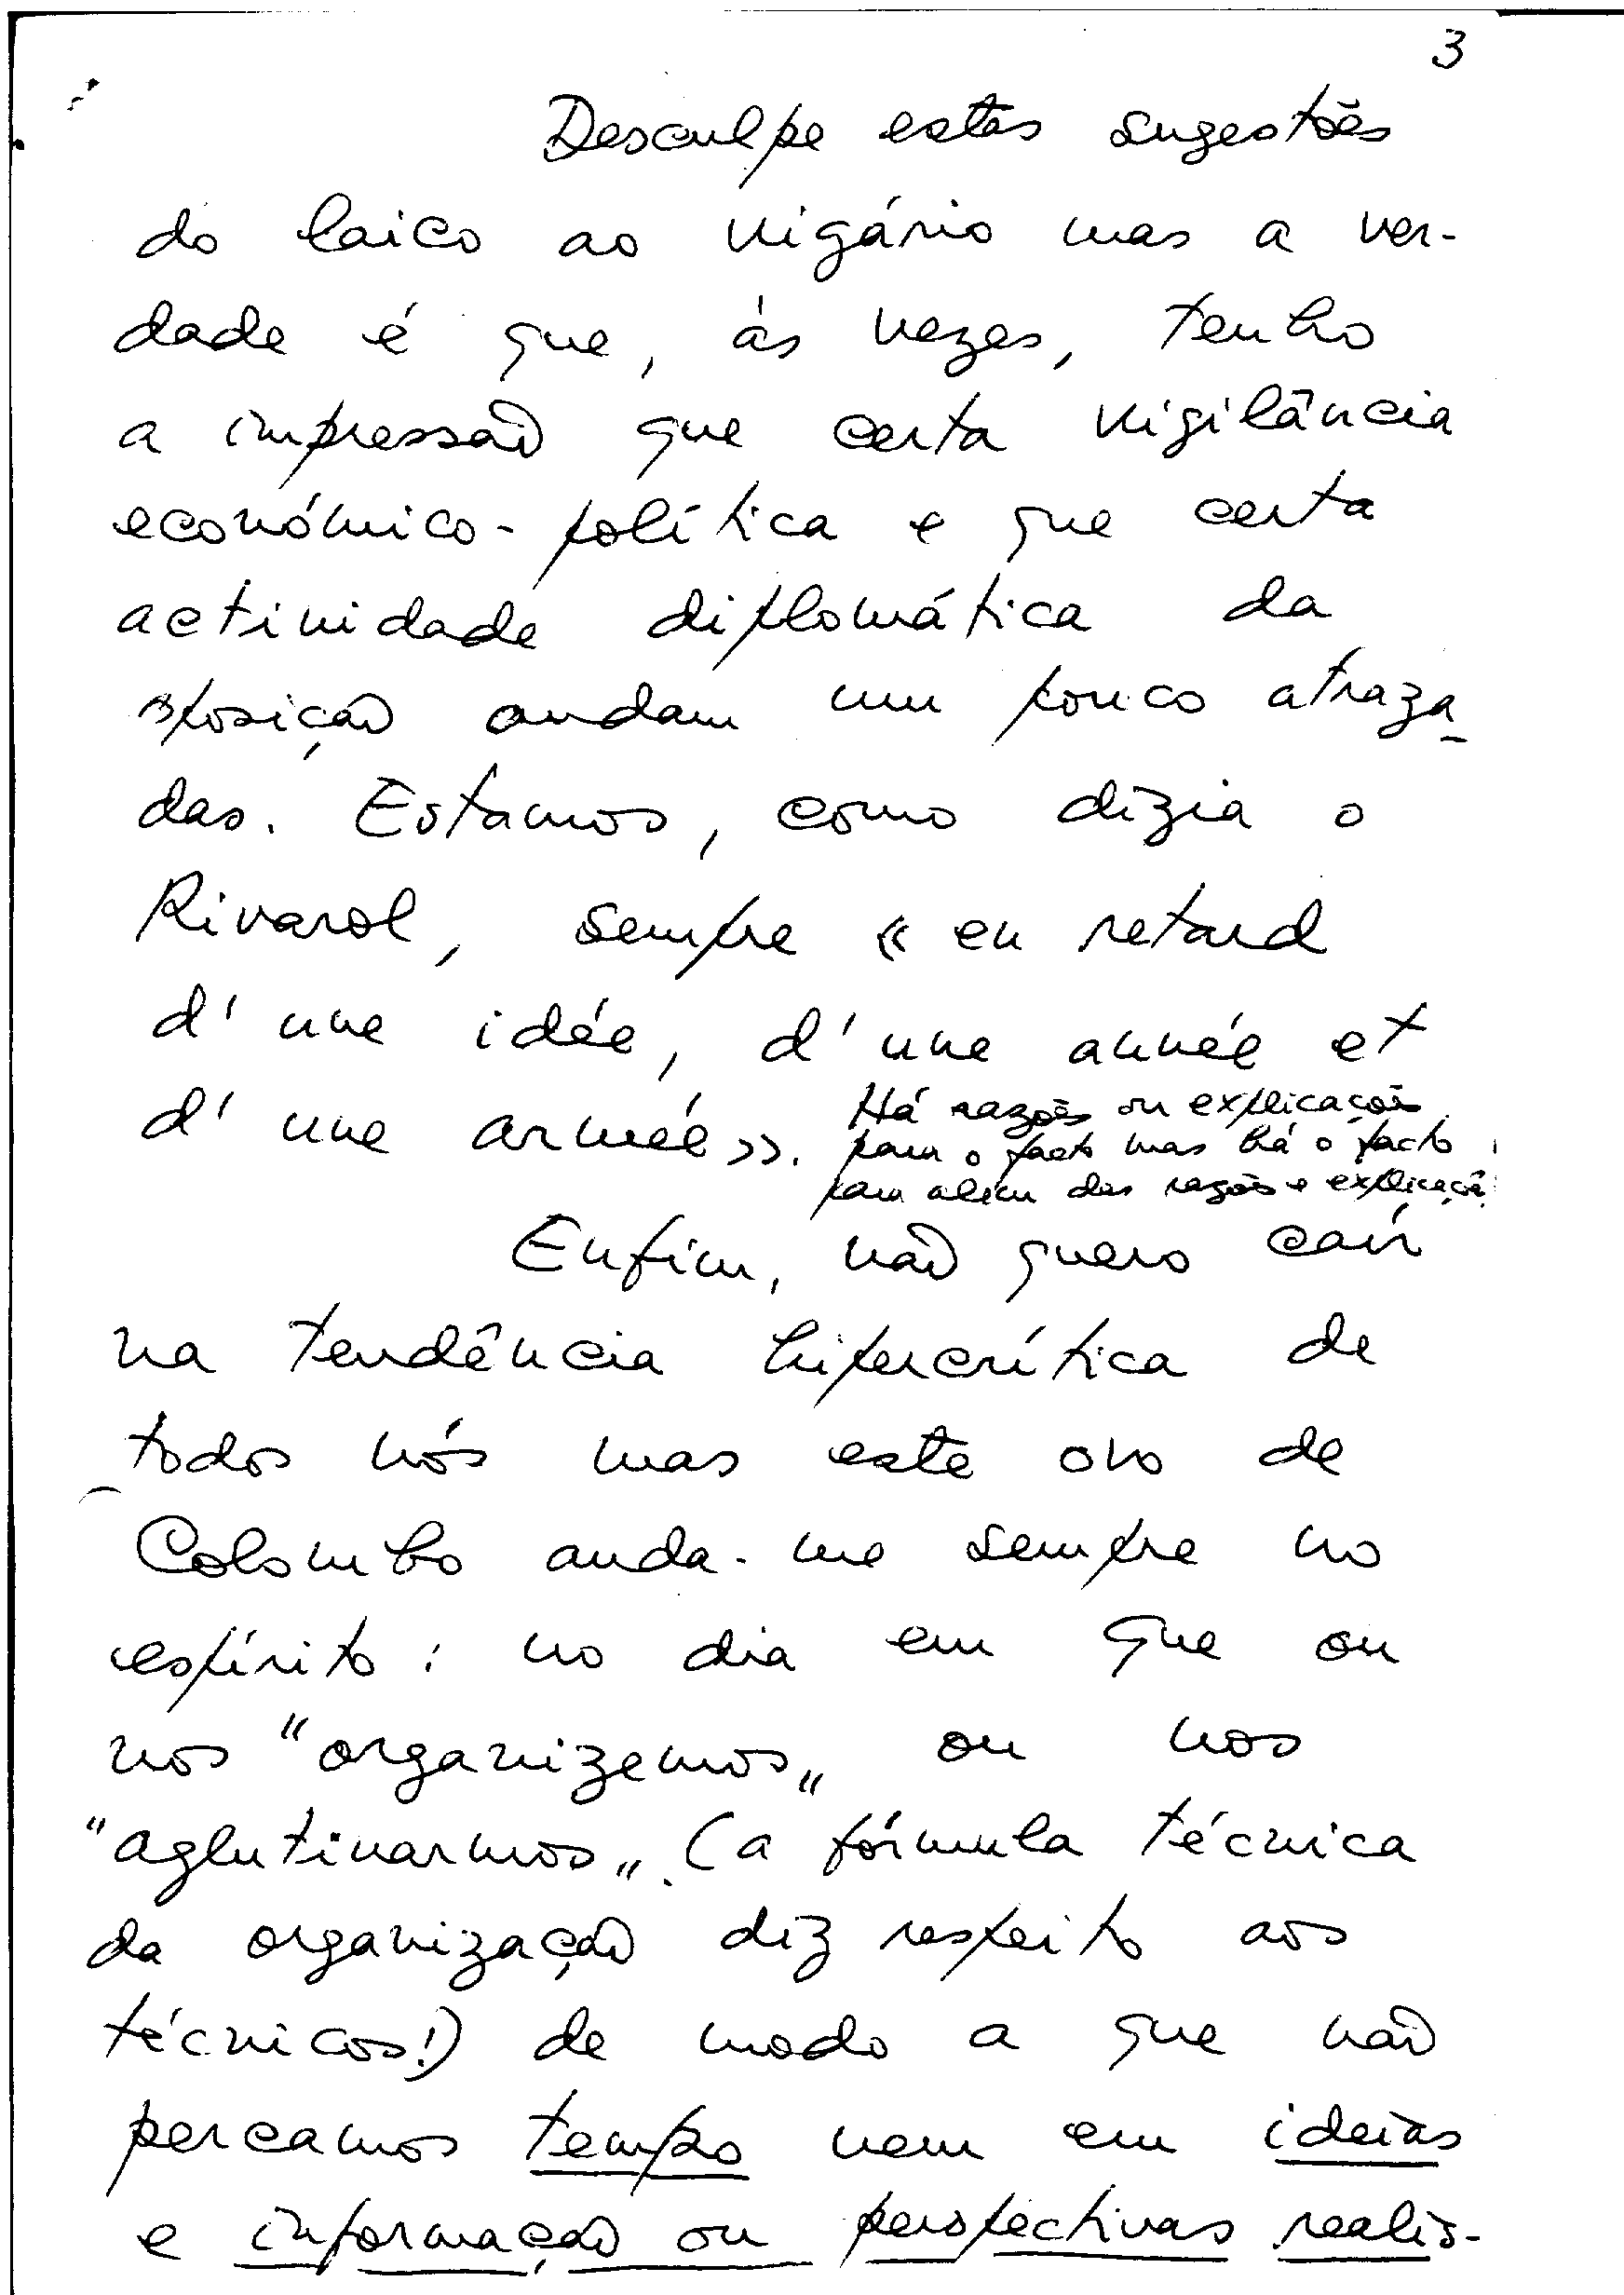 3
Desculpe estas sugestões
do laico ao vigário mas a ver-
dade é que, às vezes, tenho
a impressão que certa vigilância
económico-política e que certa
actividade diplomática da
oposição andam um pouco atraza-
das. Estamos, como dizia o
Rivarol, sempre « en retard
d'une idée, d'une année et
d'une armée».
Há razões ou explicações
para o facto mas há o facto
para além das razões e explicações
Enfim, não quero caír
na tendência hipercrítica de
todos nós mas este ovo de
Colombo anda-me sempre no
espírito: no dia em que ou
nos "organizemos" ou nos
"aglutinarmos" (a fórmula técnica
da organização diz respeito aos
técnicos!) de modo a que não
percamos tempo nem em ideias
e informação ou perspectivas realis-